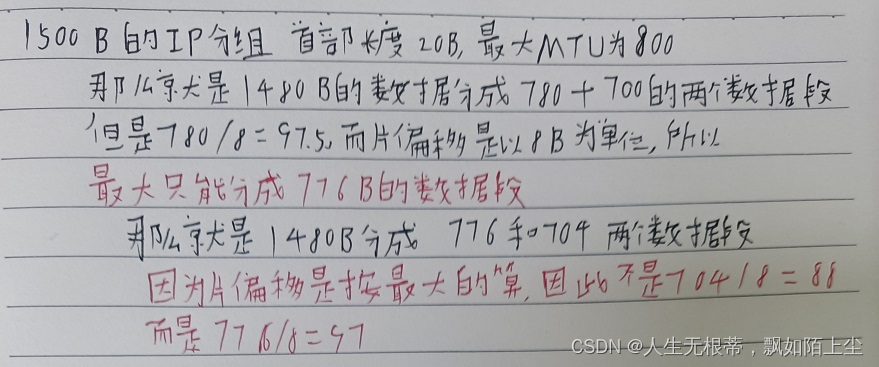 1500 B的IP分组 首部长度20B,最大MTU为800
那么就是1480B的数据分成780+700的两个数据段
但是780/8=97.5,而片偏移是以8B为单位,所以
最大只能分成776B的数据段
那么就是1480B分成 776和704 两个数据段
因为片偏移是按最大的算,因此不是704/8=88
而是776/8=97
CSDN @人生无根蒂,飘如陌上尘